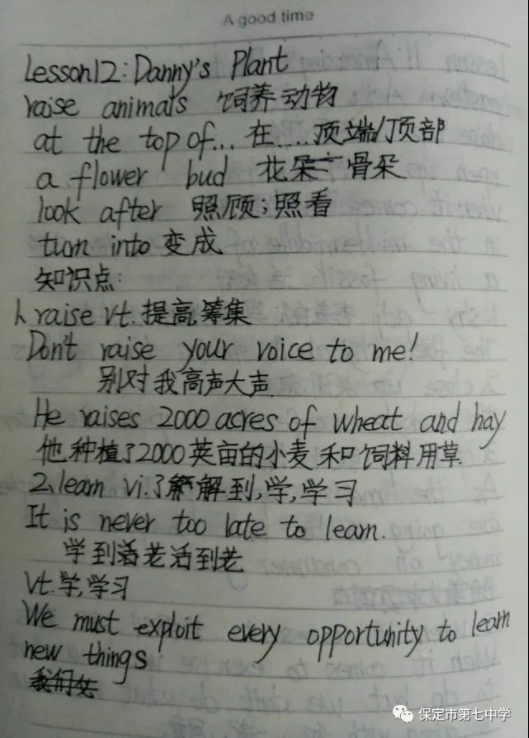 A good time
Lesson12: Danny's Plant
raise animals 饲养动物
at the top of... 在.....顶端/顶部
a flower bud 花朵 骨朵
look after 照顾;照看
turn into 变成
知识点:
1. raise vt. 提高,筹集
Don't raise your voice to me!
别对我高声大声
He raises 2000 acres of wheat and hay
他种植了2000英亩的小麦和饲料用草.
2. learn vi. 了解到,学,学习
It is never too late to learn.
学到老活到老
Vt. 学,学习
We must exploit every opportunity to learn
new things
我们
保定市第七中学